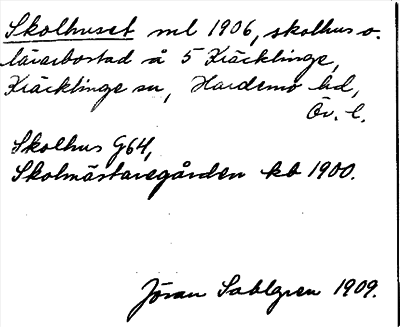 Skolhuset ml 1906, skolhus o.
lärarbostad å 5 Kräcklinge,
Kräcklinge sn, Hardemo hd,
Ör. l.
Skolhus G64,
Skolmästaregården kb 1900.
Jöran Sahlgren 1909.